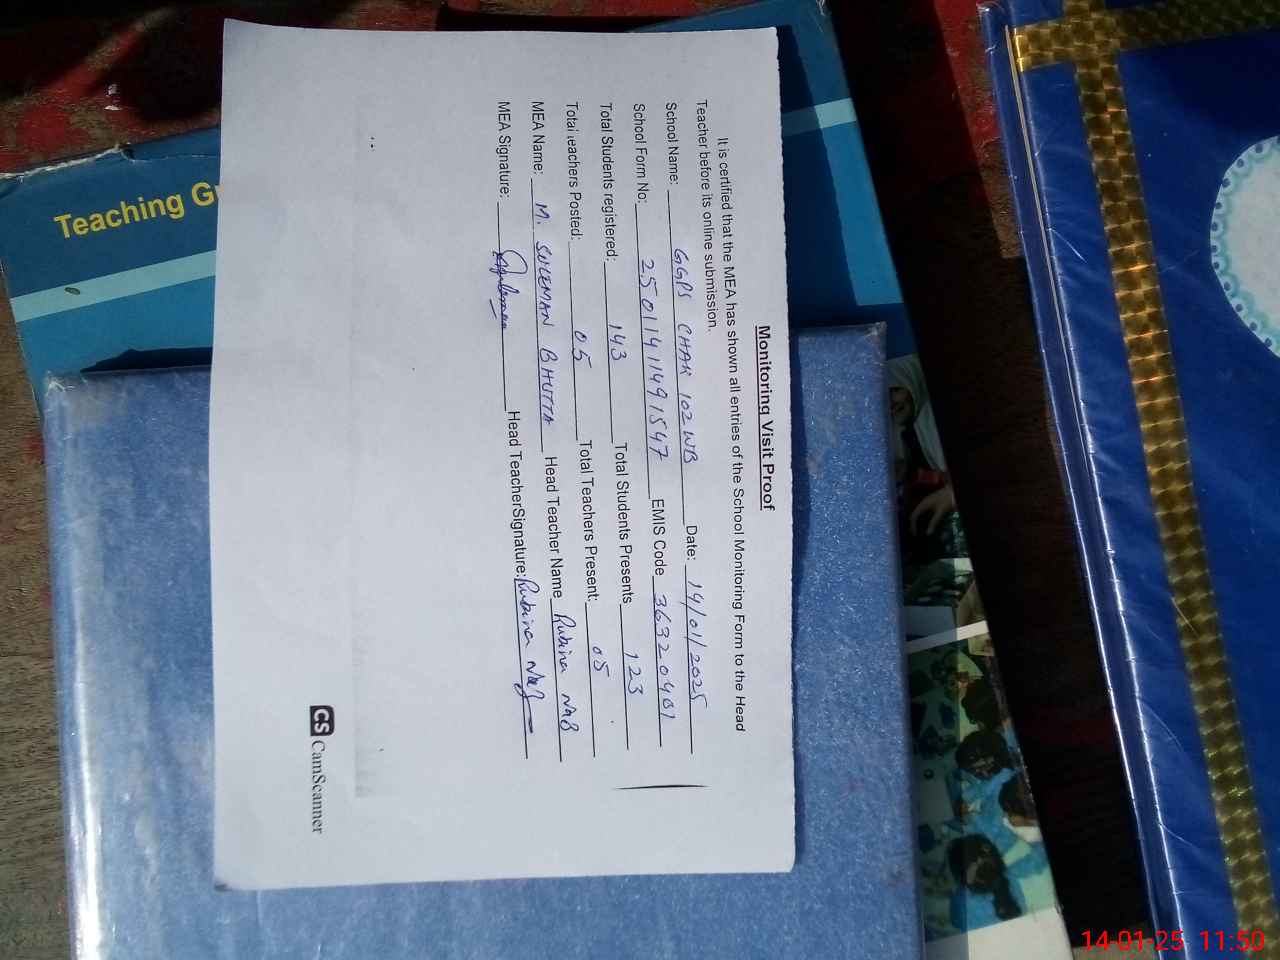 Monitoring Visit Proof
It is certified that the MEA has shown all entries of the School Monitoring Form to the Head
Teacher before its online submission.
School Name: GGPS CHAK 102 WB Date: 14/01/2025
School Form No: 25011411491547 EMIS Code 36320401
Total Students registered: 143 Total Students Presents 123
Total Teachers Posted: 05 Total Teachers Present: 05
MEA Name: M. SULEMAN BHUTTA Head Teacher Name Rubina NAB
MEA Signature: Head TeacherSignature: Rubina
CS CamScanner
Teaching Gu
14-01-25 11:50